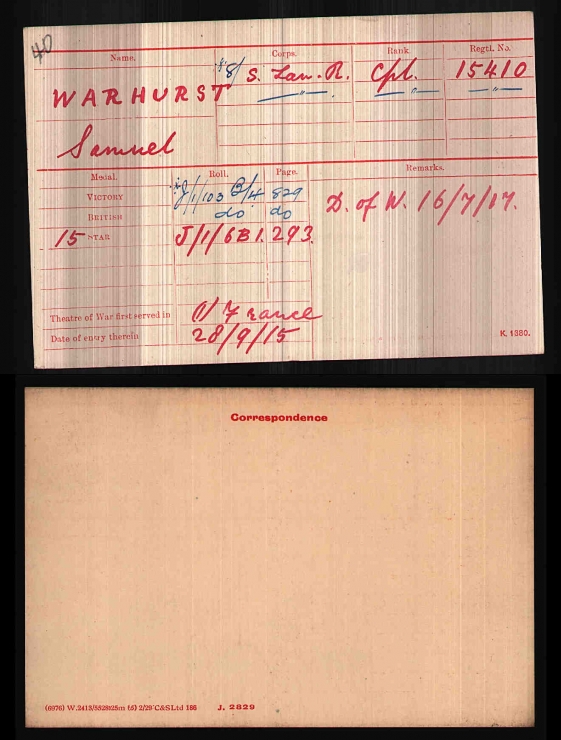 40
Name. Corps. Rank. Regtl. No.
WARHURST 8/ S. Lan. R. Cpl. 15410
" " "
Samuel
Medal. Roll. Page. Remarks.
VICTORY J/1/103 B/4 829 D. of W. 16/7/17.
BRITISH do do
15 STAR J/1/6B1. 293.
Theatre of War first served in (1) France
Date of entry therein 28/9/15
K. 1380.
Correspondence
(6976) W.2413/5528 2/29 C&SLtd 186 J. 2829